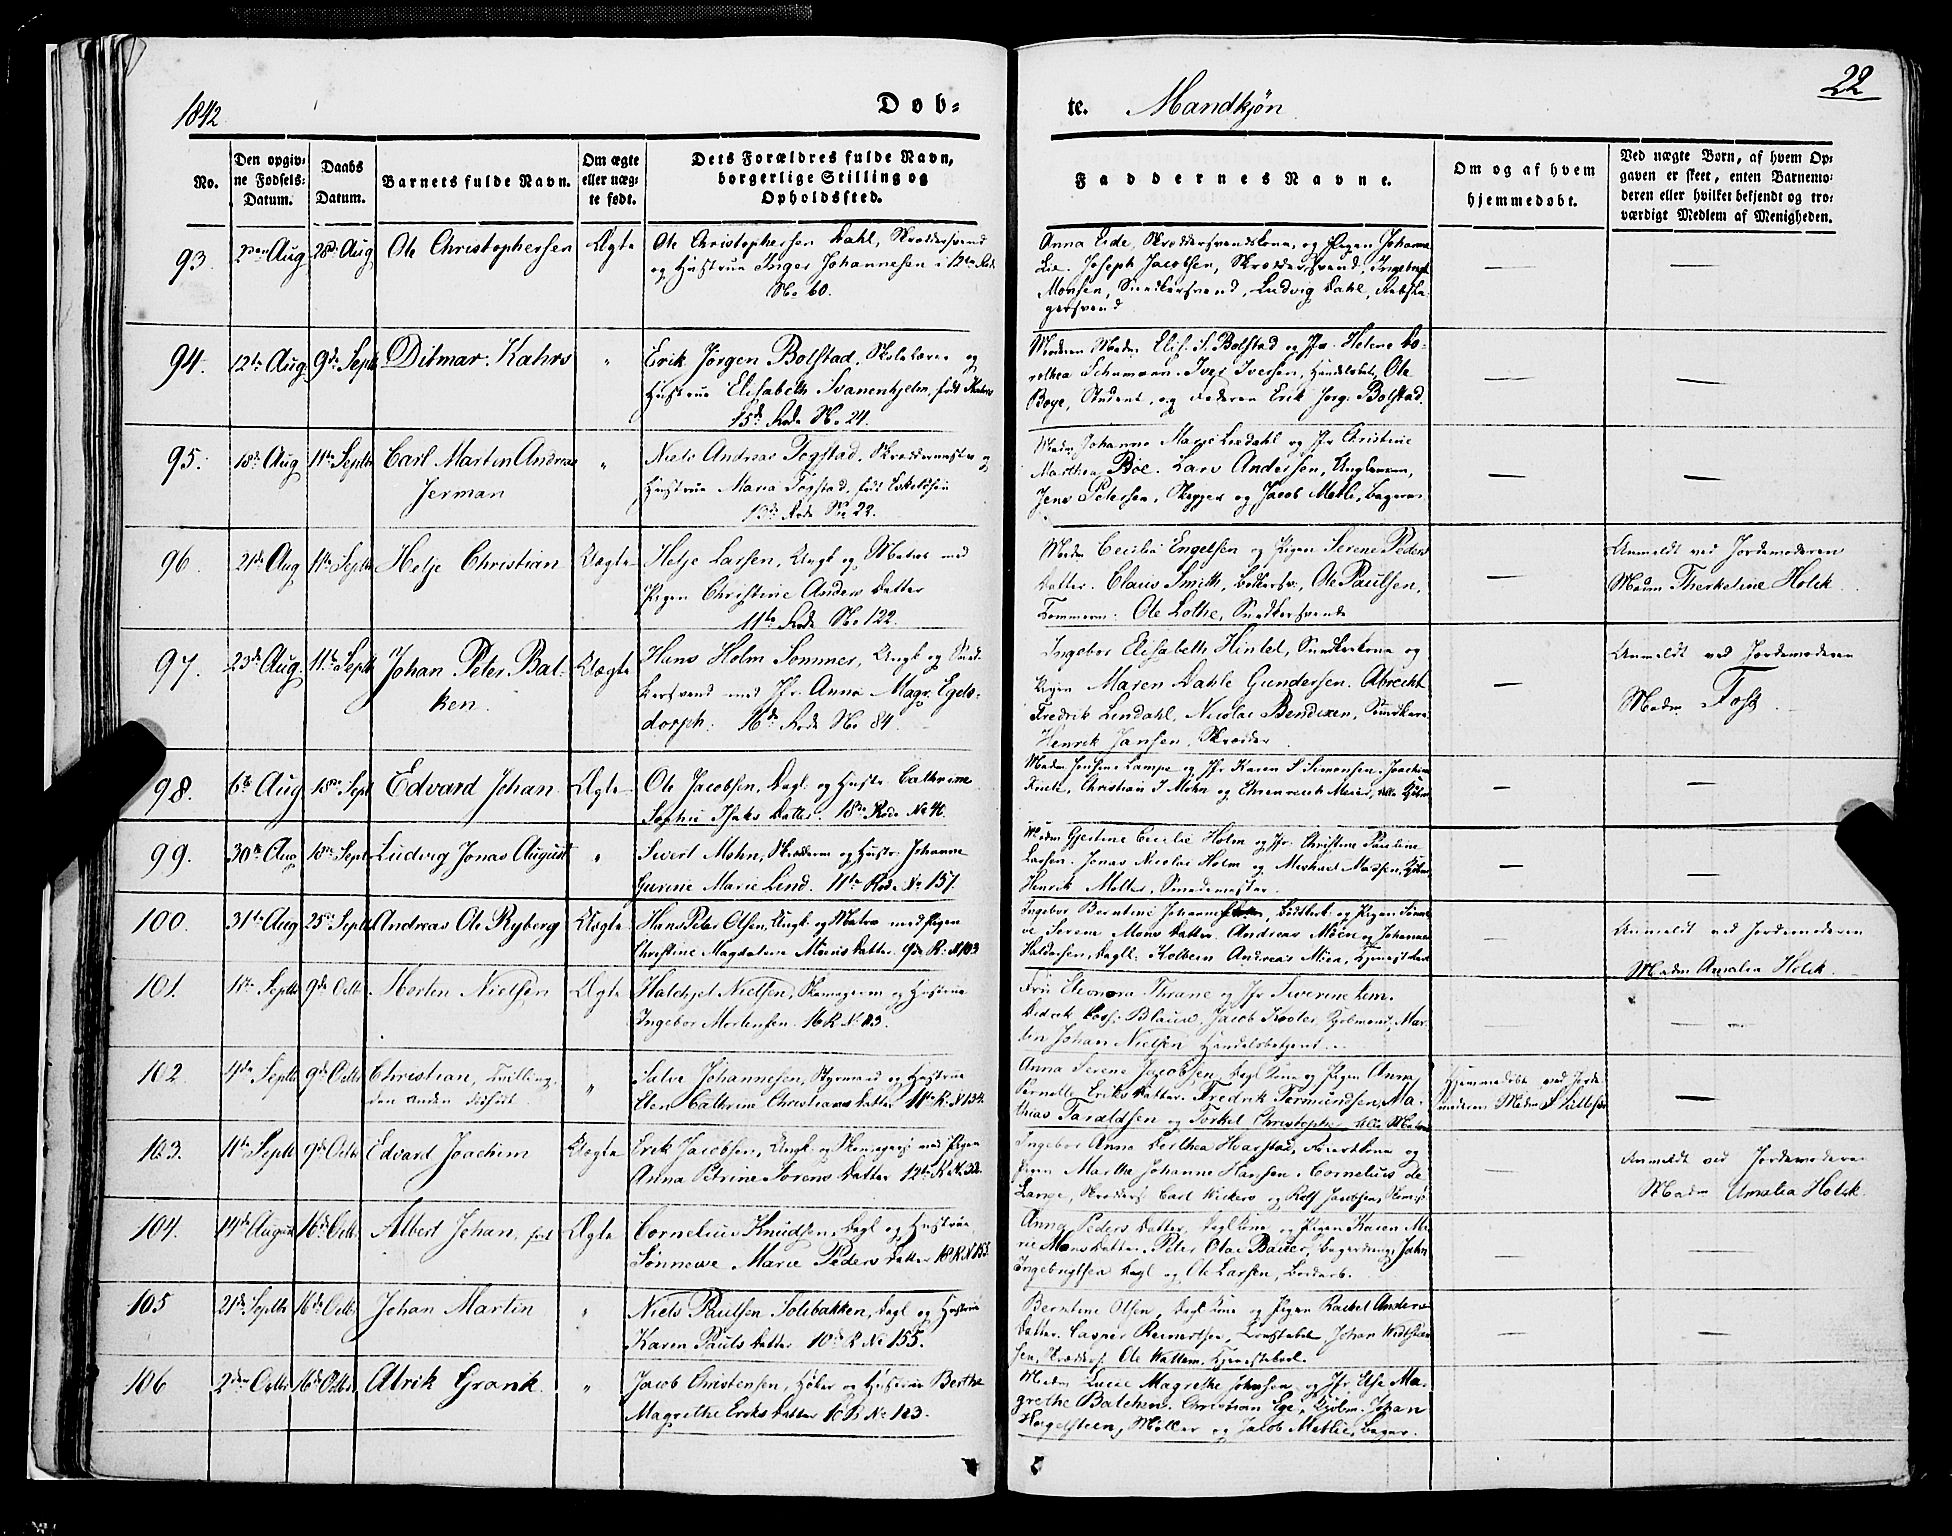 1842
Døb-
te.
Mandkjøn
22
No.
Den opgiv-
ne Fødsels-
Datum.
Daabs
Datum.
Barnets fulde Navn.
Om ægte
eller uæg-
te født.
Dets Forældres fulde Navn,
borgerlige Stilling og
Opholdssted.
Faddernes Navne.
Om og af hvem
hjemmedøbt.
Ved uægte Børn, af hvem Op-
gaven er skeet, enten Barnemo-
deren eller hvilket bekjendt og tro-
værdigt Medlem af Menigheden.
93. 2den Aug 28de Aug Ole Christophersen Ægte Ole Christophersen Dahl, Skræddersvend
og Hustrue Inger Johannesen i 12te Rode
No 60.
Anna Eide, Skræddersvendskone, og Pigen Johanna
Lie. Joseph Jacobsen, Skræddersvend, Ingebrigt
Monsen, Snedkersvend, Ludvig Dahl, Rebsla-
gersvend
94. 12te Aug 9de Septb Ditmar Kahrs " Erik Jörgen Bolstad, Skolelærer og
Hustrue Elisabeth Svanenhjelm, født Kahrs
15de Rode No. 24.
Moderen Madm Elis. S. Bolstad og Jfr. Helene Do-
rothea Schumann. Iver Iversen, Handelsbet, Ole
Boye, Student, og Faderen Erik Jörg. Bolstad.
95. 18de Aug 11te Septb Carl Martin Andreas
Jerman
" Niels Andreas Togstad, Skræddermester og
Hustrue Maria Togstad, født Eskeldsen
13de Rode No 22.
Madm Johanna Marie Liedahl og Jfr Christine
Marthea Böe. Lars Andersen, Ungkarl,
Jens Petersen, Skipper og Jacob Metli, Bager
96. 21de Aug 11te Septb Helje Christian Uægte Helje Larsen, Ungk og Matros med
Pigen Christine Anders Datter
11te Rode No. 122.
Madm Cecilie Engelsen og Pigen Serene Peders
Datter. Claus Smith, Bødkersv., Ole Paulsen,
Tømmerm. Ole Lothe, Snedkersvende
Anmeldt ved Jordemoderen
Madm Therkeline Holck.
97. 23de Aug 11te Septb Johan Peter Bal-
ken.
Uægte Hans Holm Sommer, Ungk og Sned-
kersvend med Jfr. Anna Magr. Egels-
dorph. 16de Rode No 84.
Ingebor Elisabeth Hinkel, Snedkerkone og
Pigen Maren Dahle Gundersen. Abrecht
Fredrik Lindahl, Nicolai Bendixen, Snedkere
Henrik Jansen, Skrædder.
Anmeldt ved Jordemoderen
Madm Fosk.
98. 6te Aug 18de Sept Edvard Johan Ægte Ole Jacobsen, Dagl og Hustr Cathrine
Sophie Isaks Datter. 18de Rode No 40.
Madm Jensine Lampe og Jfr Karen S Simonsen. Joachim
Friele, Christian J Mohn og Ehrenreich Meier, alle Kjöbm
99. 30te Aug 18de Sept Ludvig Jonas August " Sivert Mohn, Skrædderm og Hustr. Johanne
Gurine Marie Lind. 11te Rode No 157.
Madm Gjertine Cecilie Holm og Jfr. Christine Pauline
Larsen. Jonas Nicolai Holm og Michael Madsen, Kjöbm
Henrik Møller, Smedemester.
100. 31te Aug 25de Septb Andreas Ole Ryberg Uægte Hans Peter Olsen, Ungk. og Matros med Pigen
Christine Magdalena Möens Datter 9de R. N 103
Ingebor Berntine Johannes, Bødkerk. og Pigen Sönne-
ve Serene Mons Datter. Andreas Möen og Johannes
Haldorsen, Dagl. Kolbein Andreas Möen, Tjenestekarl
Anmeldt ved Jordemoderen
Madm Amalia Holck.
101. 1te Septb 9de Octb Morten Nielsen Ægte Halchjel Nielsen, Skomagerm og Hustrue
Ingebor Mortensen. 16 R. N 43.
Frue Eleonora Thrane og Jfr Siverine Lem.
Diderik Blauw, Jacob Kooter, Kjöbmænd, Mar-
tin Johan Nielsen Handelsbetjent.
102. 4de Septb 9de Octb Christian, Tvilling,
den anden dødfødt
" Salve Johannesen, Styrmand og Hustrue
Elen Cathrine Christians Datter 11te R. N 134.
Anna Serene Jacobsen, Dagl Kone og Pigen Anna
Pernelle Eriks Datter. Fredrik Formundsen, Ma-
thias Taraldsen og Torkel Christophers alle Matroser
Hjemmedøbt ved Jorde
moderen Madm Sillesen
103. 11te Septb 9de Octb Edvard Joachim Uægte Erik Jacobsen, Ungk. og Skomagers med Pigen
Anna Petrine Sørens Datter 12te R N 32
Ingebor Anna Dorthea Hvarstad, Fierertkone og
Pigen Marthe Johanne Hansen. Cornelius de
Lange, Skrædders Carl Wickers og Rolf Jacobsen, Skomag
Anmeldt ved Jordemoderen
Madm Amalia Holck.
104. 14de August 16de Octb Albert Johan, Ægte Cornelius Knudsen, Dagl og Hustrue
Sönneve Marie Peders Datter 18 R N 155
Anna Peders Datter, Dagl Kone og Pigen Karen Ma-
rie Mons Datter. Peter Olai Bauer, Bagerdreng, John
Ingebrigtsen Dagl og Ole Larsen, Bødkers.
105 21de Septb 16de Octb Johan Martin " Niels Paulsen Solebakken, Dagl og Hustrue
Karen Pauls Datter 10de R No 155.
Berntine Olsen, Dagl Kone og Pigen Rachel Anders
Datter. Casper Reinertsen, Johan Mathias-
sen, Skrædders. Ole Wattem, Tjenestekarl.
106 2den Octb 16de Octb Alrik Grank. " Jacob Christensen, Høker og Hustrue Berthe
Magrethe Eriks Datter 16 R No 123.
Madm Lucie Magrethe Johnsen og Jfr. Else Ma-
grethe Balchen. Christian Ege, Kjöbm. Johan
Hegelstein, Möller og Jacob Metlie, Bager.